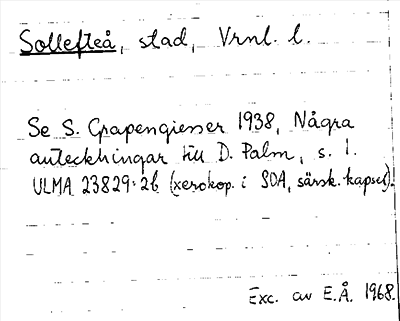 Sollefteå, stad, Vrnl. l.
Se S. Grapengiesser 1938, Några
anteckningar till D. Palm, s. 1.
ULMA 23829:26 (xerokop. i SOA, särsk. kapsel).
Exc. av E.Å. 1968.